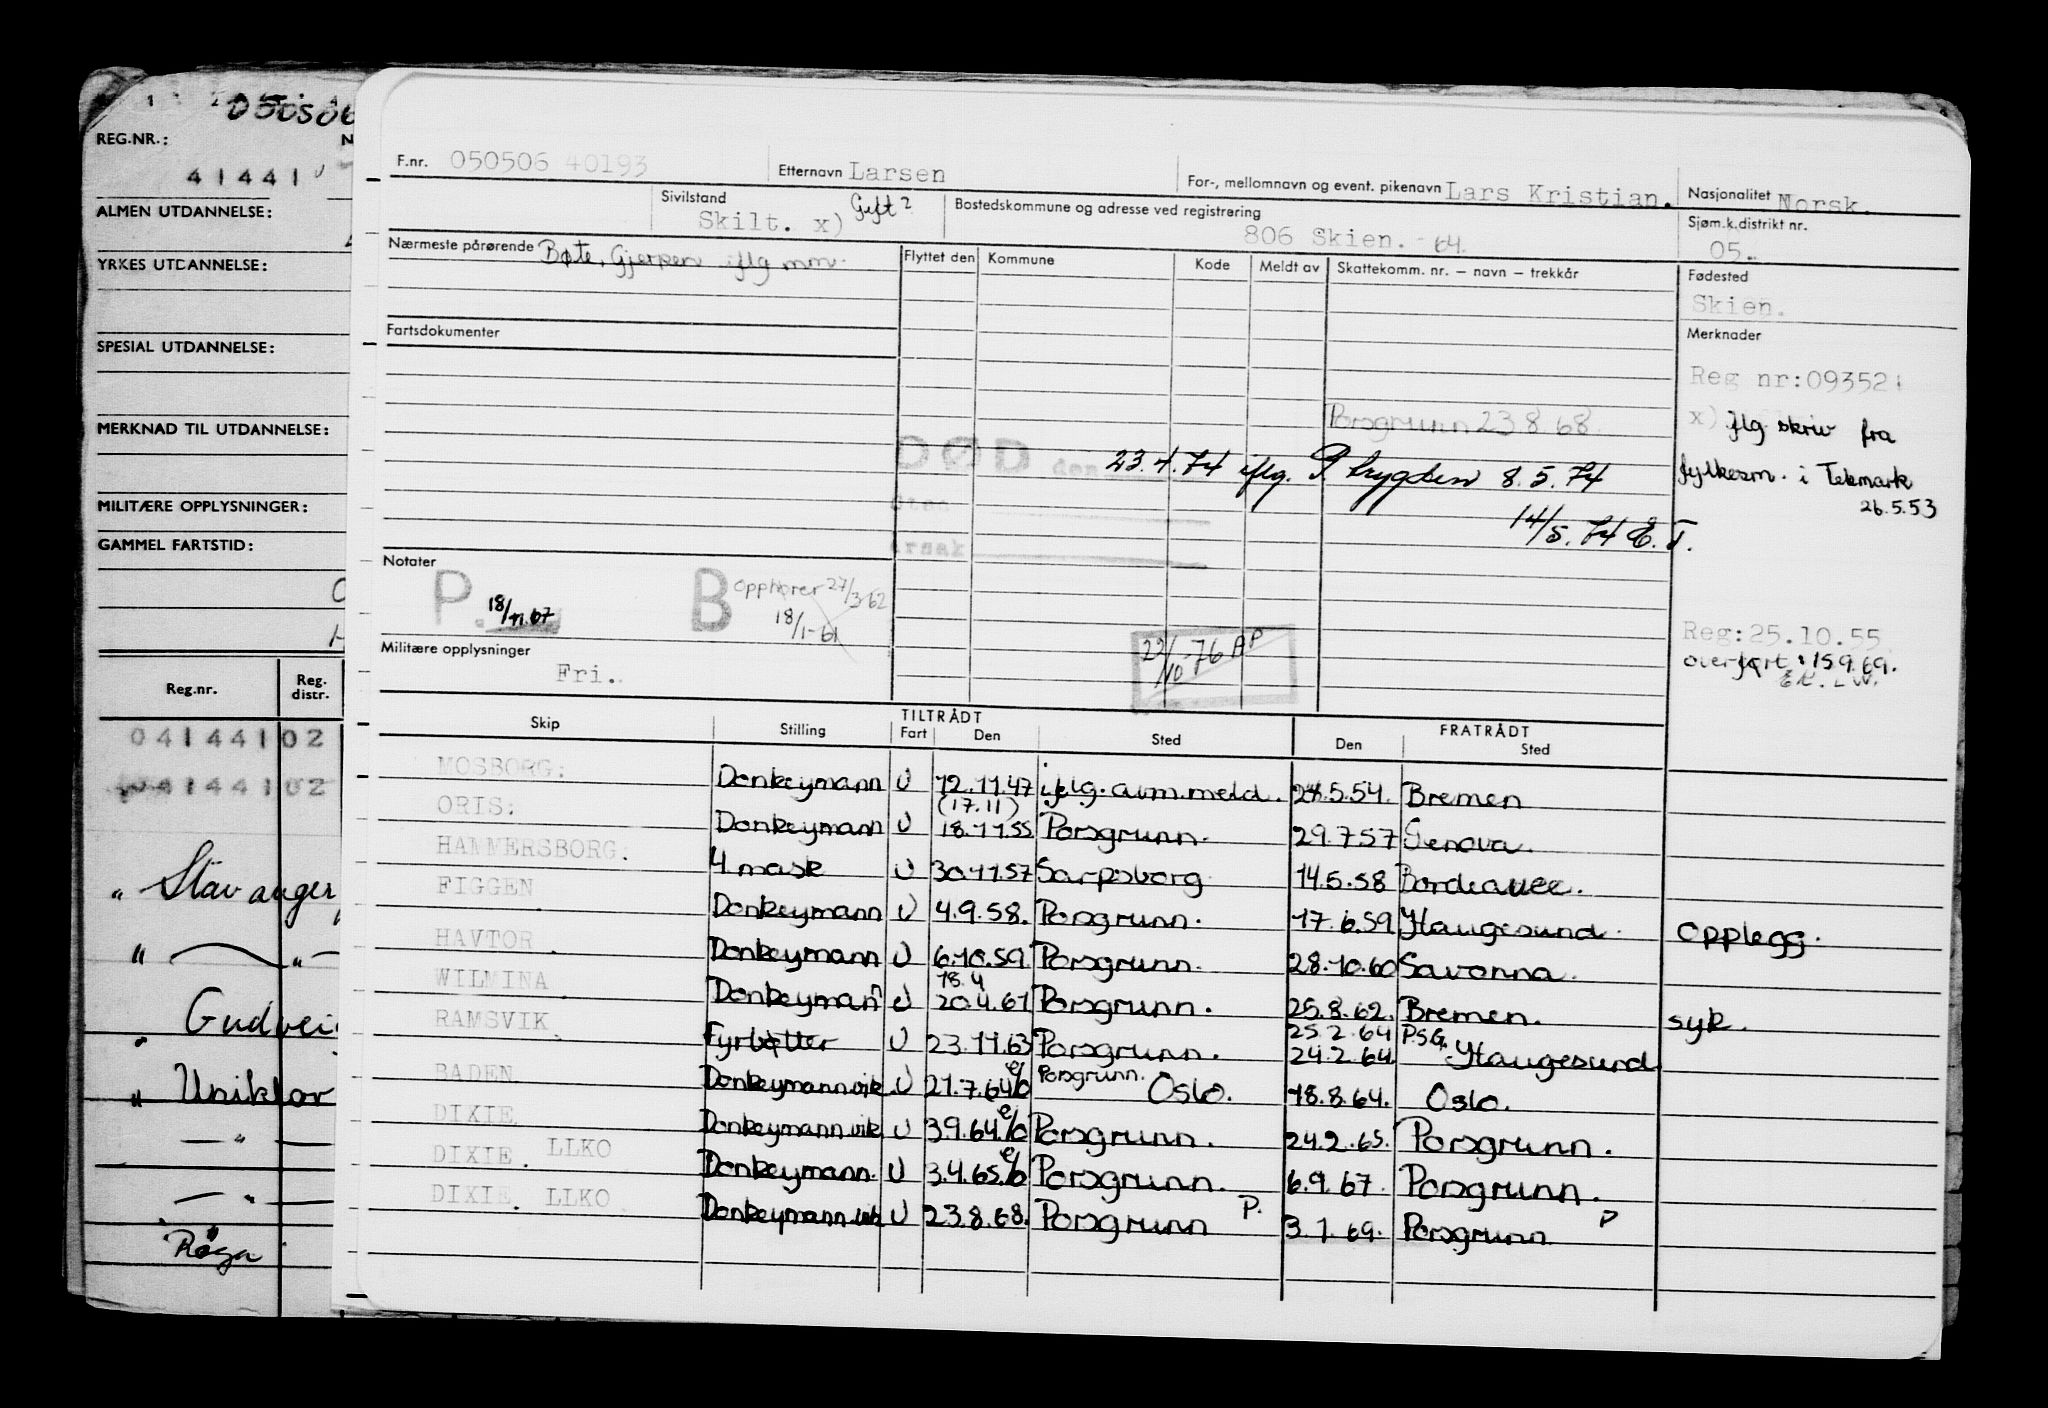 050506
REG.NR.:
N
41441
ALMEN UTDANNELSE:
YRKES UTDANNELSE:
SPESIAL UTDANNELSE:
MERKNAD TIL UTDANNELSE:
MILITÆRE OPPLYSNINGER:
GAMMEL FARTSTID:
Reg.nr. Reg. distr.
04144102
04144102
" Stavanger
" — " —
" Gudvei
" Uniklor
— " —
— " —
Røga
F.nr. 050506 40193 Etternavn Larsen For-, mellomnavn og event. pikenavn Lars Kristian. Nasjonalitet Norsk.
Sivilstand Skilt. x) Gift? Bostedskommune og adresse ved registrering 806 Skien. - 64. Sjøm.k.distrikt nr. 05.
Nærmeste pårørende Bøte, Gjerpen iflg mm. Flyttet den Kommune Kode Meldt av Skattekomm. nr. – navn – trekkår Fødested
Skien.
Fartsdokumenter Merknader
Reg nr:093521
Porsgrunn 23.8.68. x) Iflg skriv fra
DØD den 23.1.74 iflg. P trygden 8.5.74 fylkesm. i Telemark
26.5.53
Sted
14/5.74 E.T.
årsak
Notater
P. 18/11.67 B opphører 27/3-62
18/1-61
Reg:25.10.55
overført: 15.9.69.
22/10-76 AP
Militære opplysninger
Fri.
Skip TILTRÅDT FRATRÅDT
Stilling Fart Den Sted Den Sted
MOSBORG: Donkeymann U 12.11.47 iflg. avm.meld. 24.5.54. Bremen
(17.11)
ORIS: Donkeymann U 18.11.55 Porsgrunn. 29.7.57 Genova.
HAMMERSBORG: 4 mask U 30.11.57 Sarpsborg 14.5.58 Bordeaux.
FIGGEN Donkeymann U 4.9.58. Porsgrunn. 17.6.59 Haugesund. Opplegg.
HAVTOR. Donkeymann U 6.10.59. Porsgrunn. 28.10.60 Savonna.
18.4
WILMINA Donkeymann U 20.4.61 Porsgrunn. 25.8.62. Bremen. syk.
25.2.64 P.S.G.
RAMSVIK Fyrbøtter U 23.11.63 Porsgrunn. 24.2.64. Haugesund
BADEN Donkeymann.vik U 21.7.64 e/o Porsgrunn. Oslo. 18.8.64. Oslo.
DIXIE. Donkeymann.vik U 3.9.64. e/o Porsgrunn. 24.2.65. Porsgrunn.
DIXIE. LLKO Donkeymann. U 3.4.65. e/o Porsgrunn. 6.9.67. Porsgrunn.
DIXIE. LLKO Donkeymann.vik U 23.8.68. Porsgrunn P. 3.1.69. Porsgrunn P